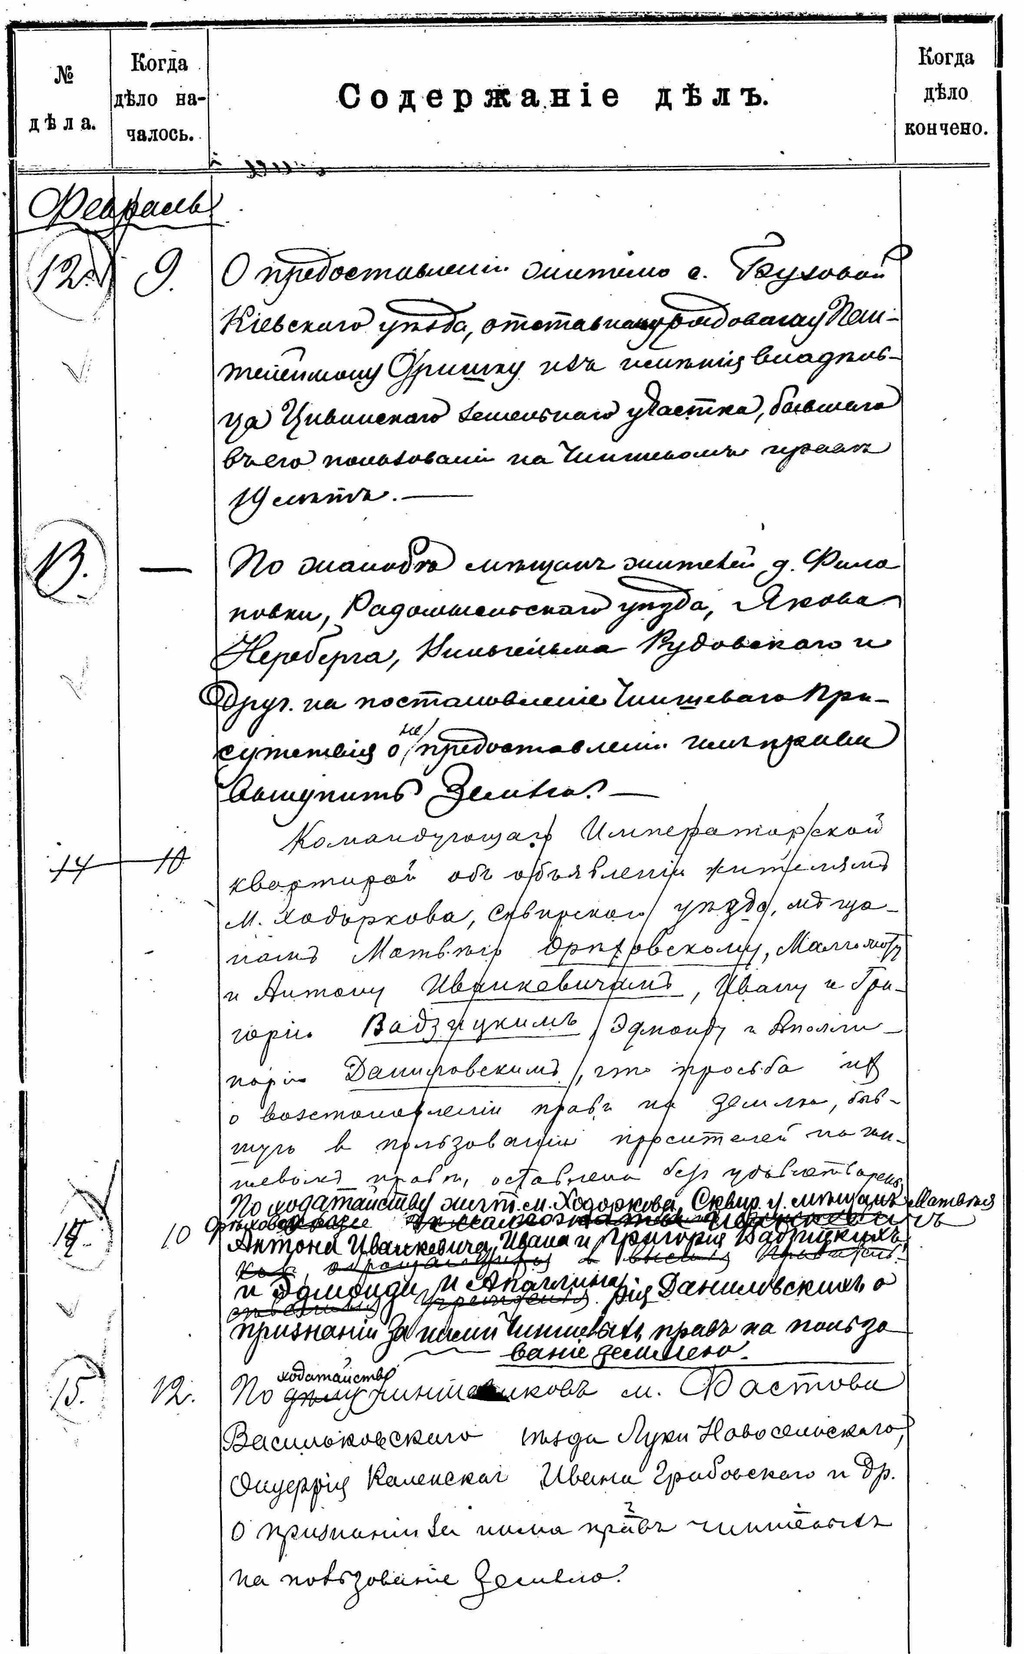 № дѣла.
Когда дѣло на-
чалось.
Содержаніе дѣлъ.
Когда дѣло кончено.
Февраль
12. 9. О предоставленіи жителю с. Бузовой
Кіевскаго уѣзда, отставному рядовому Пан-
телеймону Оришку изъ имѣнія владѣль-
ца Цивинскаго земельнаго участка, бывшаго
въ его пользованіи на чиншевомъ правѣ
19 лѣтъ. —
13. — По жалобѣ мѣщанъ жителей д. Фило
новки, Радомысльскаго уѣзда, Якова
Нерберга, Вильгельма Рудовскаго и
друг. на постановленіе Чиншеваго При-
сутствія о не предоставленіи имъ права
выкупить землю. —
14 10 Командующаго Императорской
квартирой объ объявленіи жителямъ
м. Ходоркова, Сквирскаго уѣзда, мѣща-
намъ Матвѣю Орѣховскому,
и Антону Иванкевичамъ, Ивану и Гри-
горію Вадзицкимъ, Эдмонду и Аполли-
нарію Даниловскимъ, что просьба их
о возстановленіи правъ на землю, быв-
шую в пользованіи просителей на чин-
шевомъ правѣ, оставлена без удовлетворенія
По ходатайству жит. м. Ходоркова, Сквир. у. мѣщанъ Матвѣя
14. 10 Орѣховскаго
Антона Иванкевича, Ивана и Григорія Вадзицкихъ,
и Эдмонда и Аполлина
рія Даниловскихъ о
признаніи за ними чиншевыхъ правъ на пользо
ваніе землею.
ходатайству
15. 12. По дѣлу чиншевиковъ м. Фастова
Васильковскаго уѣзда Луки Новосельскаго,
Каленскаго Ивана Грабовскаго и др.
о признаніи за ними правъ чиншевыхъ
на пользованіе землею.